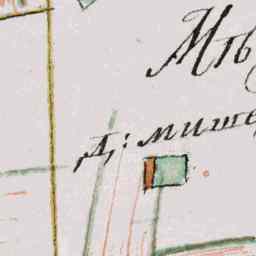 Мѣ
Д: мише